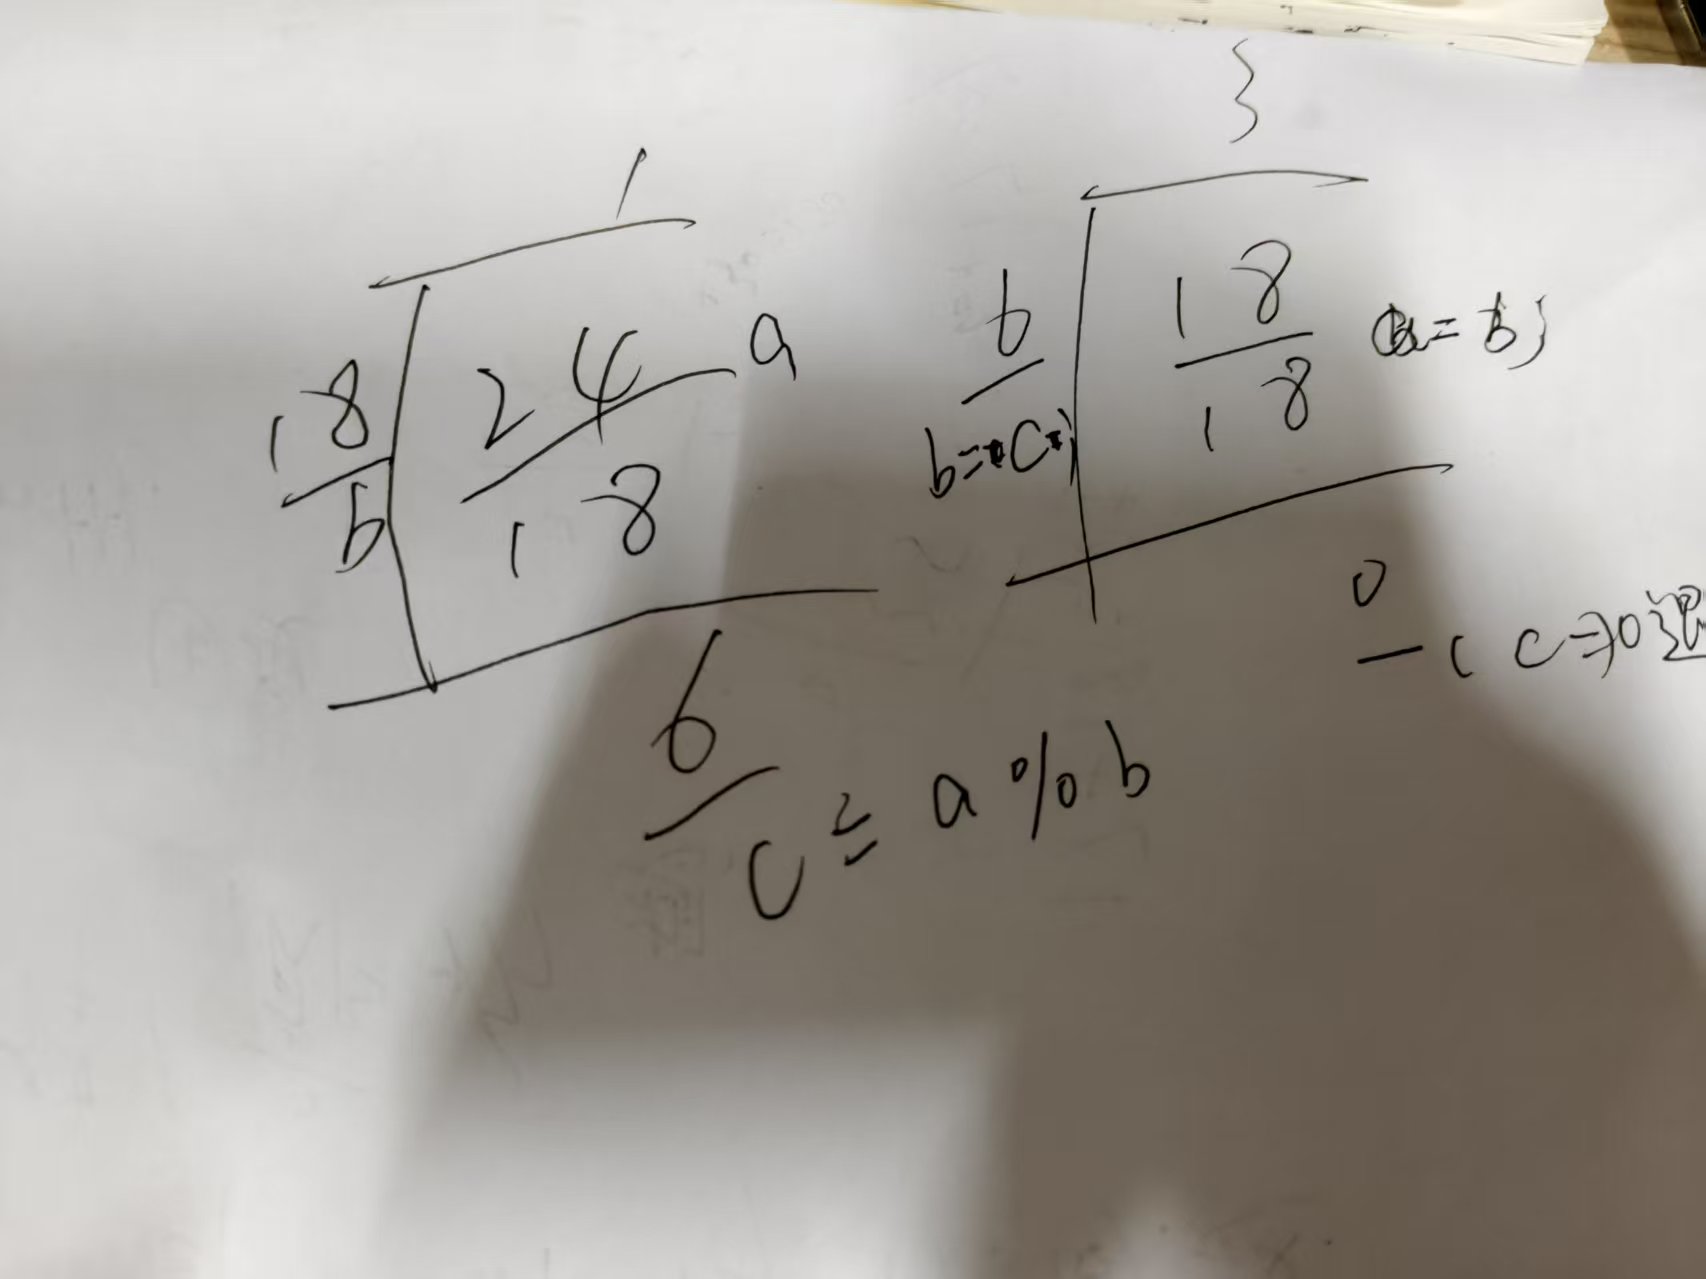 1
24 a
18
b
18
6
c = a % b
3
6
b = c;
18 a = b;
18
0
c c = 0 退